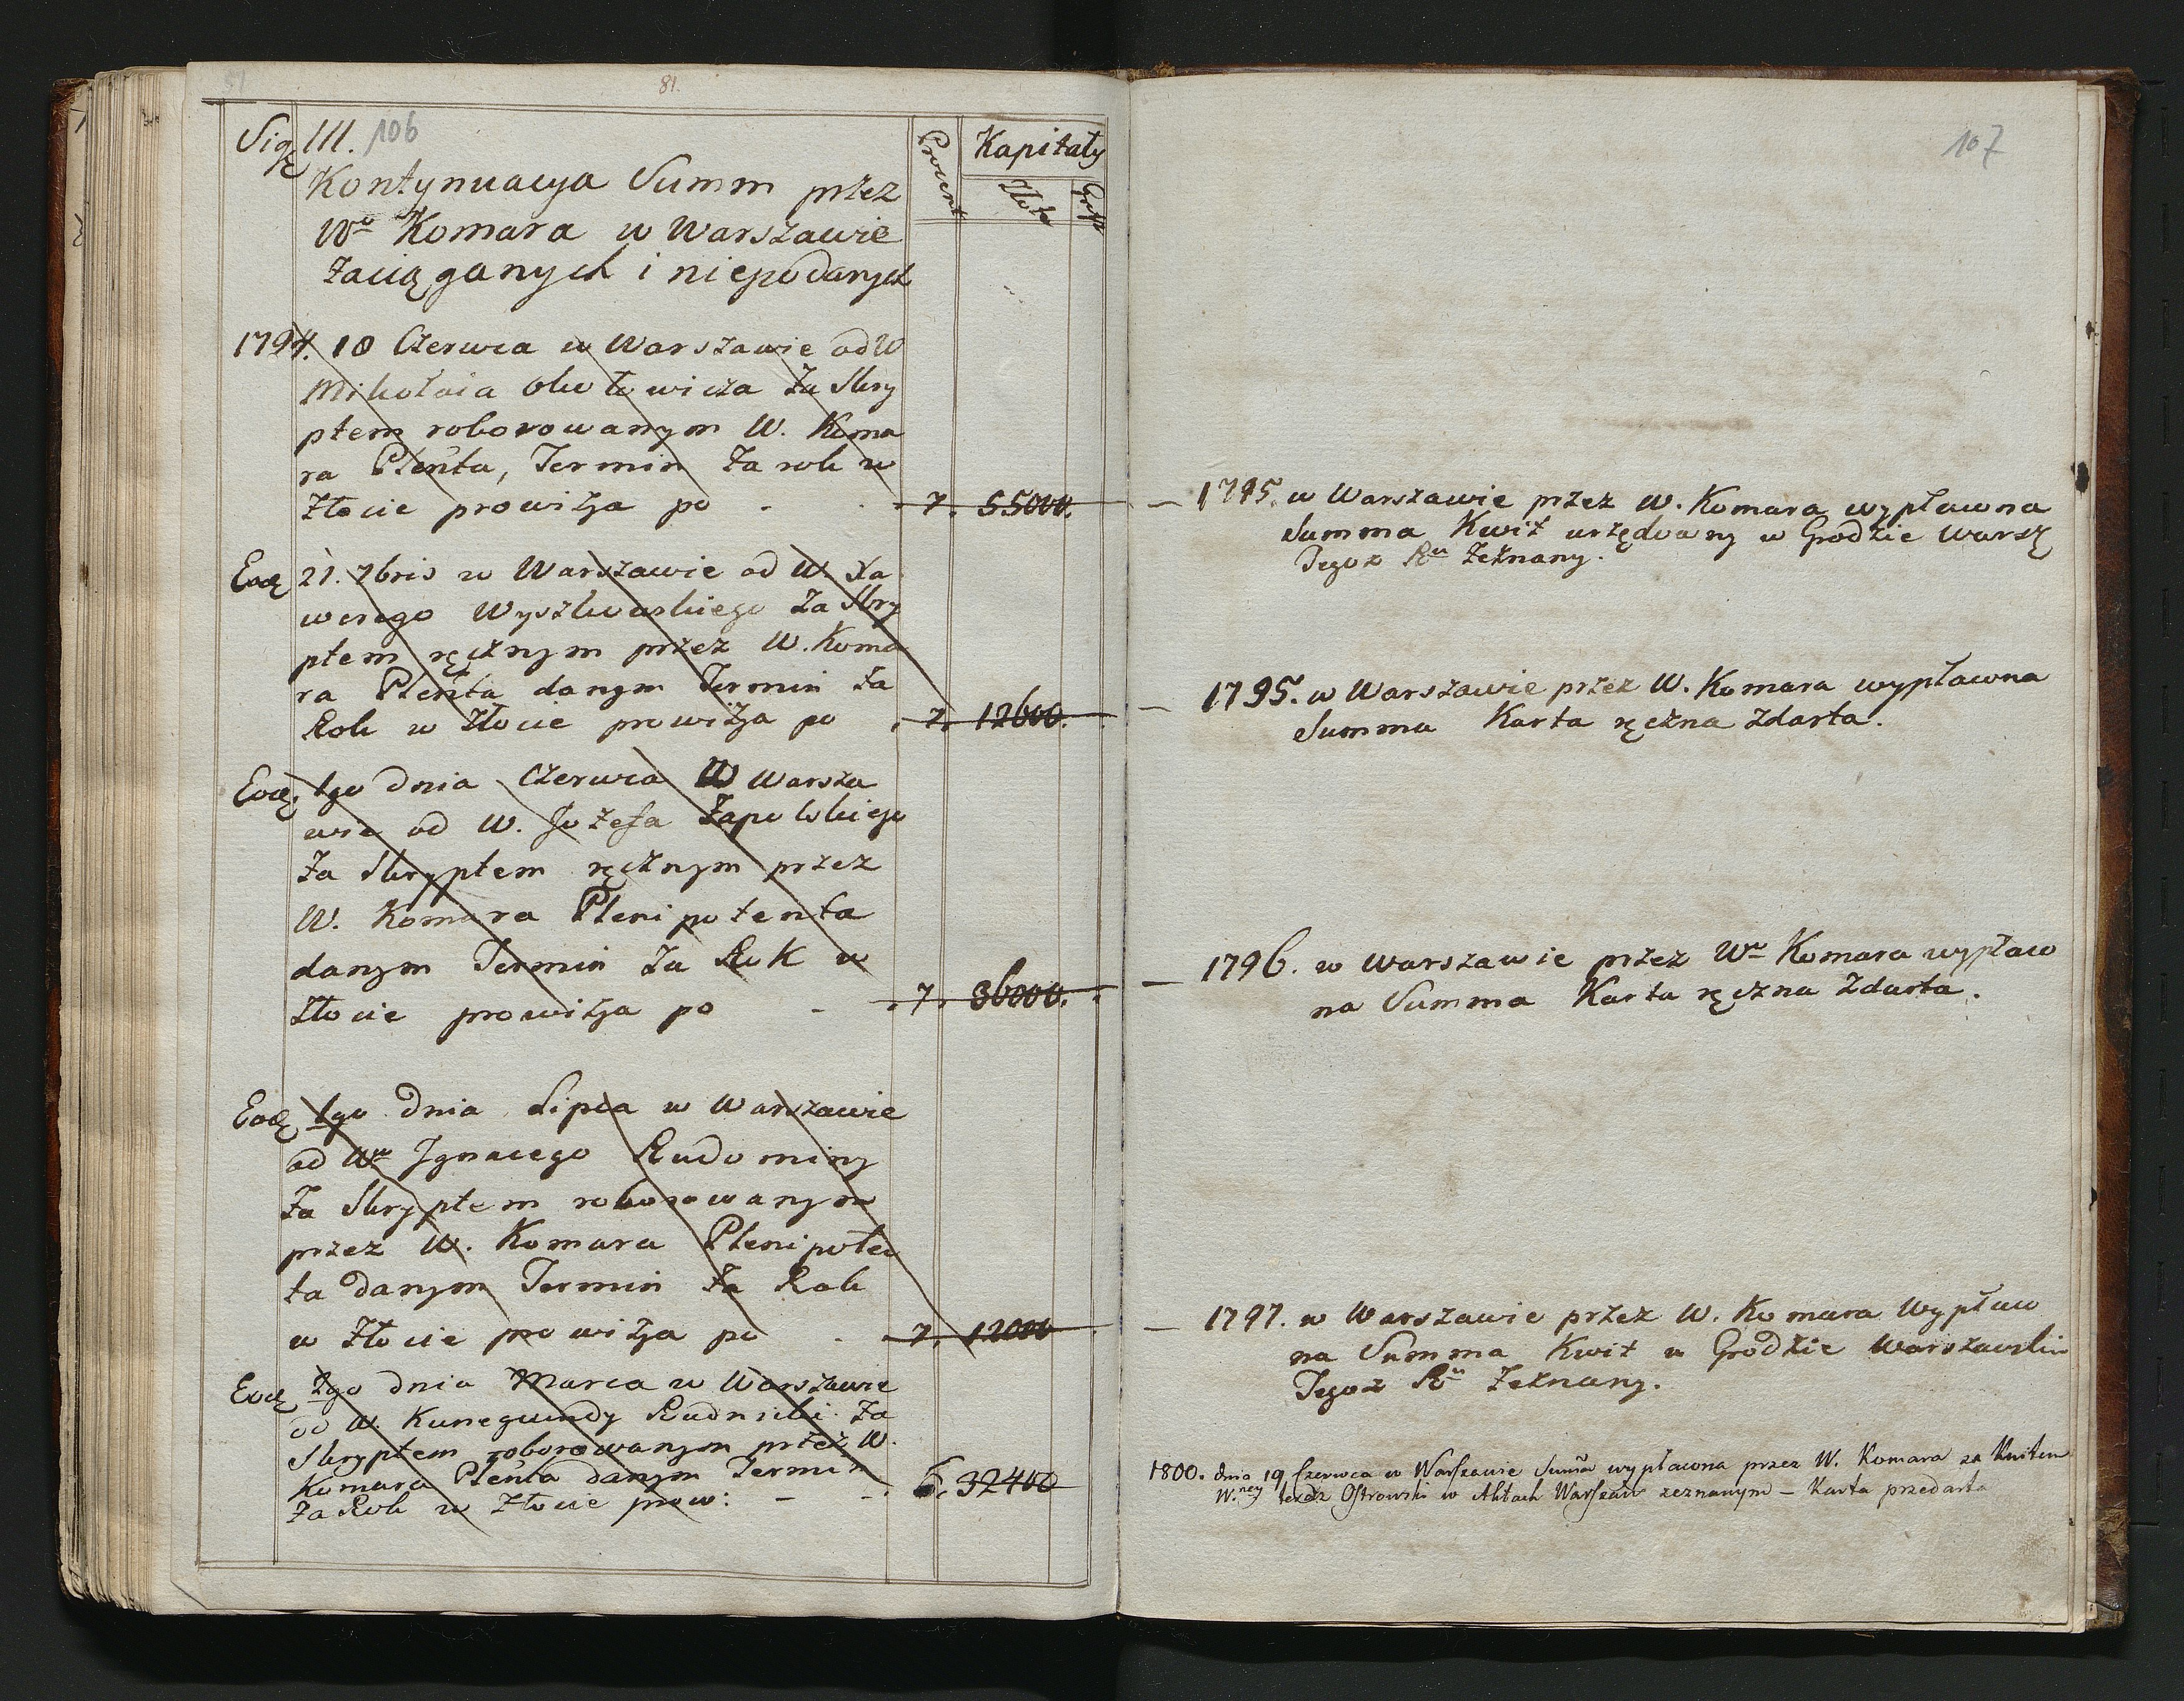 51
81.
Sig III. 106
Kontynuacya Summ przez
Wo Komara w Warszawie
zaciąganych i niepodanych
Procent
Kapitały
Złote
1794. 10 Czerwca w Warszawie od W
Mikołaia za Skry
ptem roborowanym W. Koma
ra Plenta, Termin za rok w
złocie prowizya po - . 7. 55000.
Eod 21. 7bris w Warszawie od W. Xa
werego Wyszkowskiego za Skry
ptem ręcznym przez W. Koma
ra Plenta danym Termin za
Rok w złocie prowizya po . 7. 12600.
Eod. 1go dnia Czerwca W Warsza
wie od W. Jozefa Zapolskiego
za Skryptem ręcznym przez
W. Komara Plenipotenta
danym Termin za Rok w
złocie prowizya po - . 7. 36000.
Eod 1go dnia Lipca w Warszawie
od Wo Ignacego Rudominy
za Skryptem roborowanym
przez W. Komara Plenipoten
ta danym Termin za Rok
w złocie prowizya po - 7. 12000
Eod 2go dnia Marca w Warszawie
od W. Kunegundy Rudnicki za
Skryptem roborowanym przez W.
Komara Plenta danym Termin
za Rok w złocie prow: - - . 6. 32400
107
— 1795. w Warszawie przez W. Komara wypłacona
Summa Kwit urzędowny w Grodzie Warsz
Tegoż Ru zeznany.
— 1795. w Warszawie przez W. Komara wypłacona
Summa Karta ręczna zdarta.
— 1796. w Warszawie przez Wo Komara wypłaco
na Summa Karta ręczna zdarta.
— 1797. w Warszawie przez W. Komara Wypłaco
na Summa Kwit w Grodzie Warszawskim
Tegoż Ru zeznany.
1800. dnia 19 Czerwca w Warszawie Summa wypłacona przez W. Komara za Kwitem
W.ney teraz Ostrowski w Aktach Warszaw zeznanym — Karta przedarta